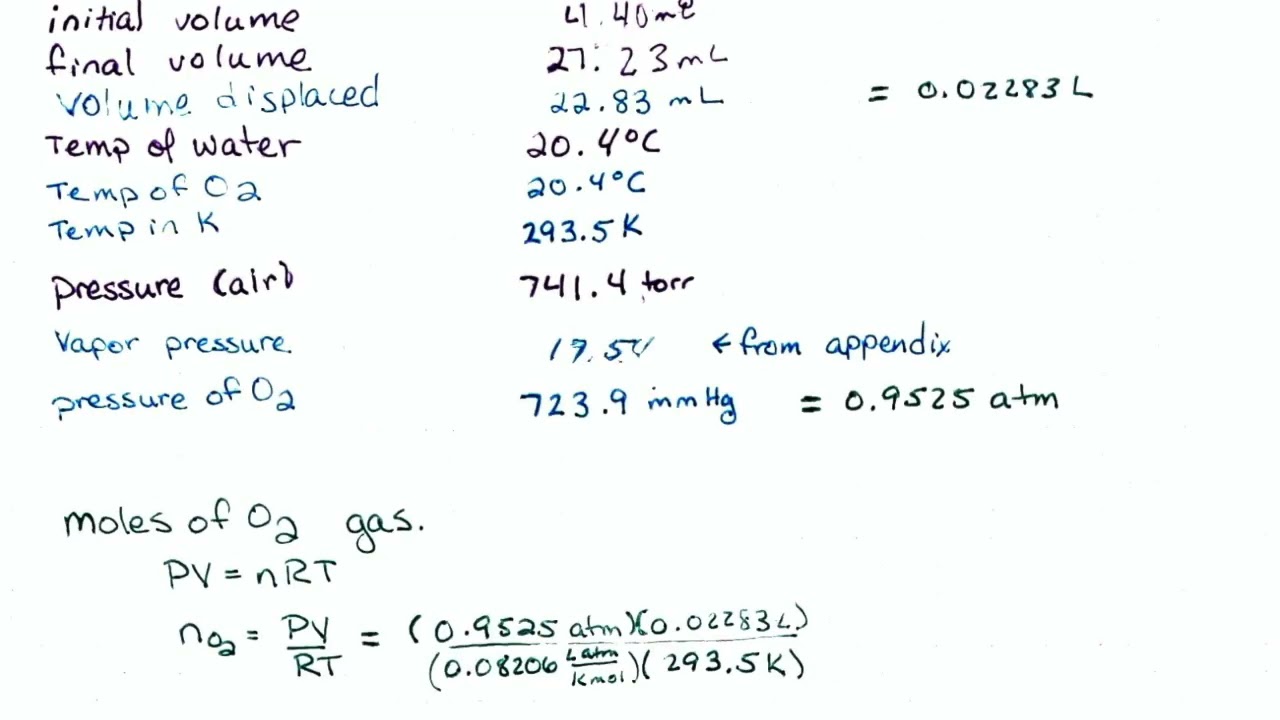 initial volume 4.40 mL
final volume 27.23 mL
volume displaced 22.83 mL = 0.02283 L
Temp of water 20.4°C
Temp of O2 20.4°C
Temp in K 293.5 K
pressure (air) 741.4 torr
Vapor pressure 17.54 ← from appendix
pressure of O2 723.9 mmHg = 0.9525 atm
moles of O2 gas.
PV = nRT
nO2 = PV/RT = (0.9525 atm)(0.02283 L)/(0.08206 L atm/K mol)(293.5 K)